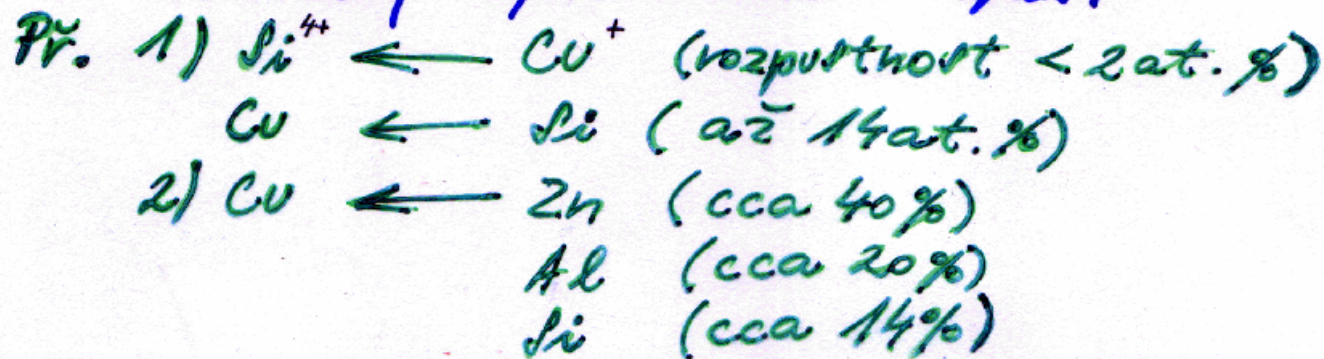 Př. 1) Si⁴⁺ ← Cu⁺ (rozpustnost < 2at. %)
Cu ← Si (až 14at. %)
2) Cu ← Zn (cca 40%)
Al (cca 20%)
Si (cca 14%)